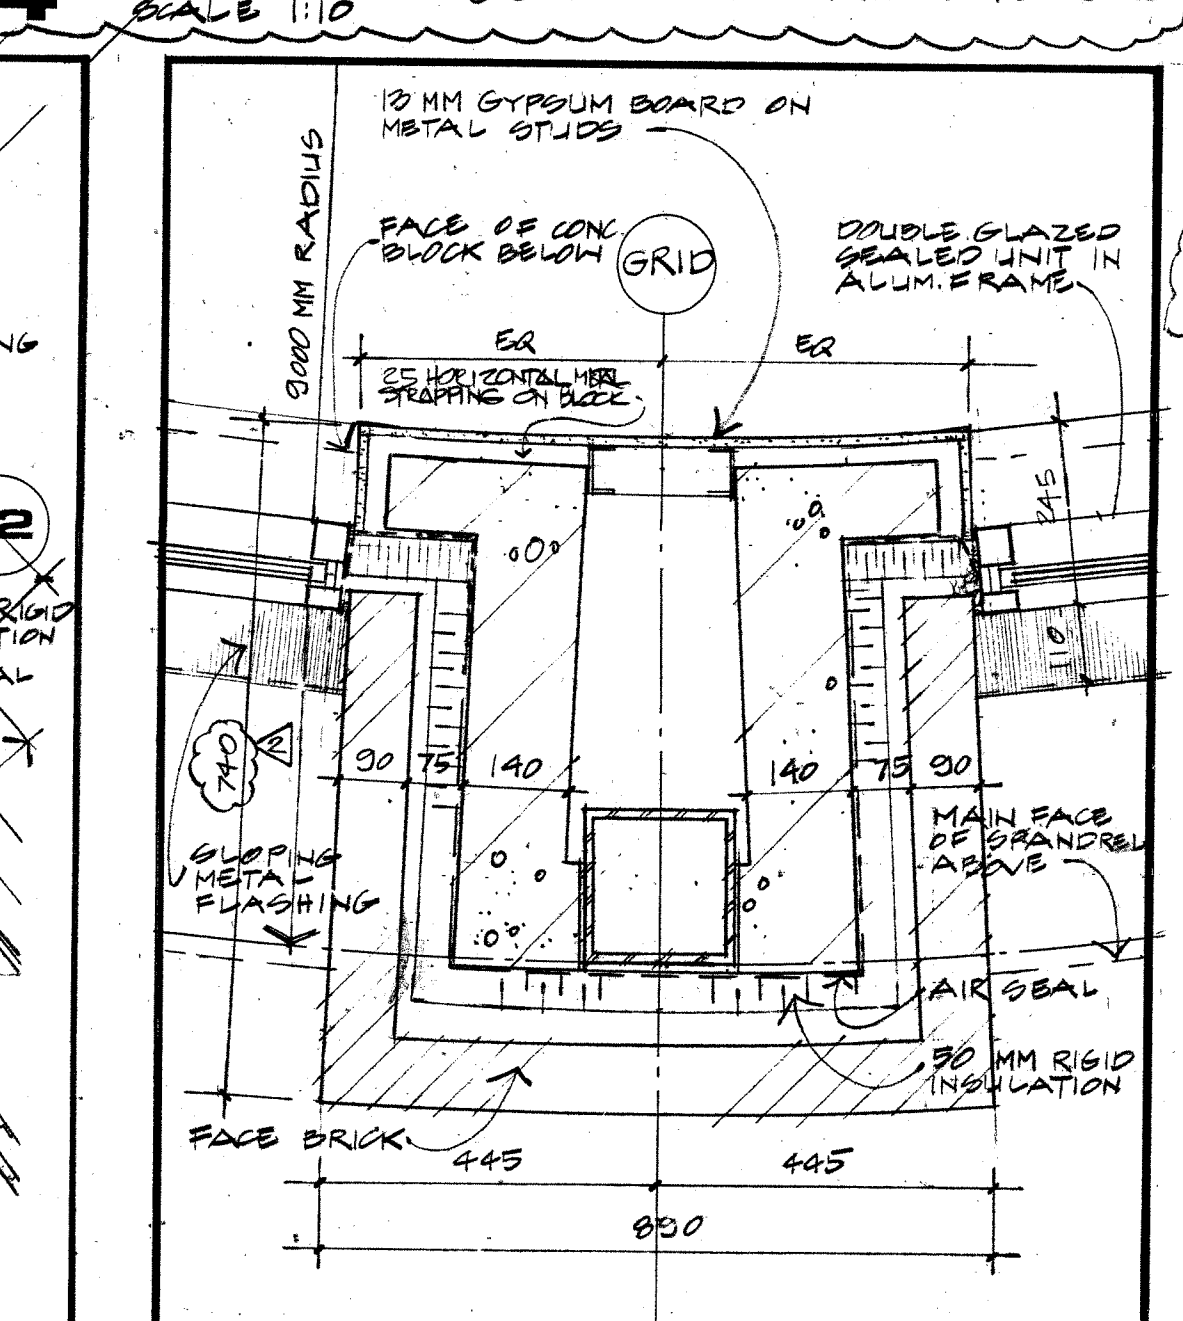 SCALE 1:10
13 MM GYPSUM BOARD ON
METAL STUDS
9000 MM RADIUS
FACE OF CONC
BLOCK BELOW
GRID
DOUBLE GLAZED
SEALED UNIT IN
ALUM. FRAME
EQ
EQ
25 HORIZONTAL METAL
STRAPPING ON BLOCK
245
2
RIGID
110
740
2
90
75
140
140
75
90
MAIN FACE
OF SPANDREL
ABOVE
SLOPING
METAL
FLASHING
AIR SEAL
50 MM RIGID
INSULATION
FACE BRICK
445
445
890